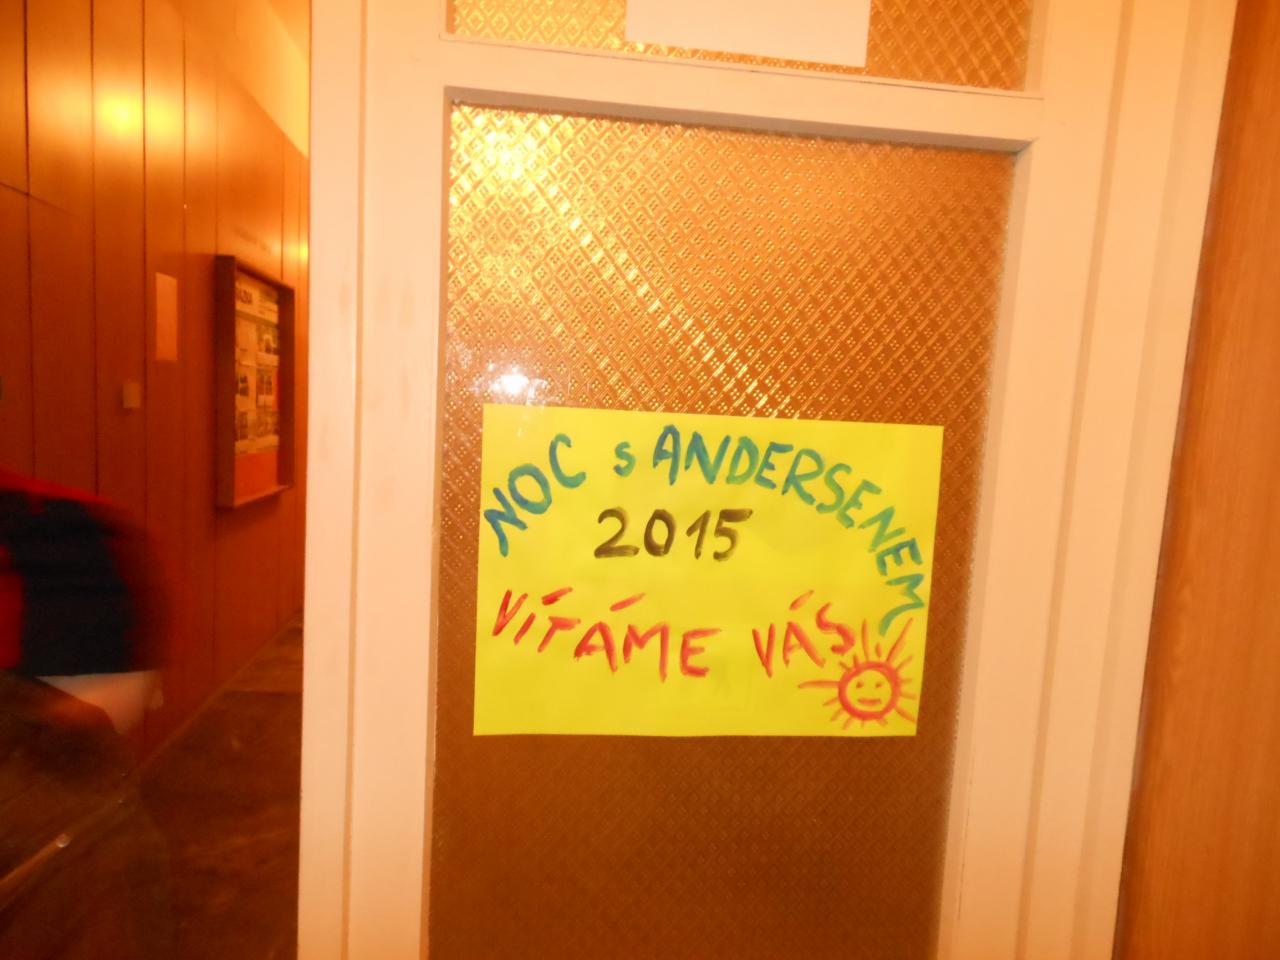 NOC s ANDERSENEM
2015
VÍTÁME VÁS